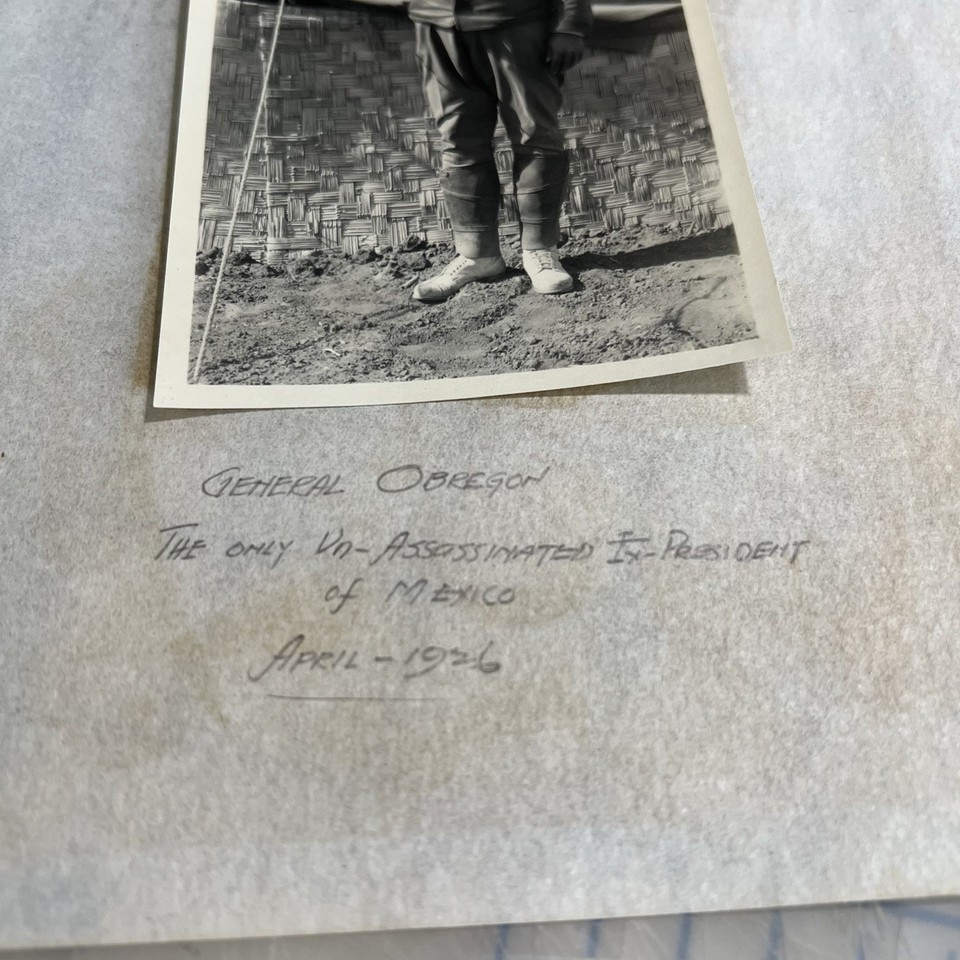 GENERAL OBREGON
THE ONLY Un-ASSASSINATED Ex-PRESIDENT
of MEXICO
APRIL-1926